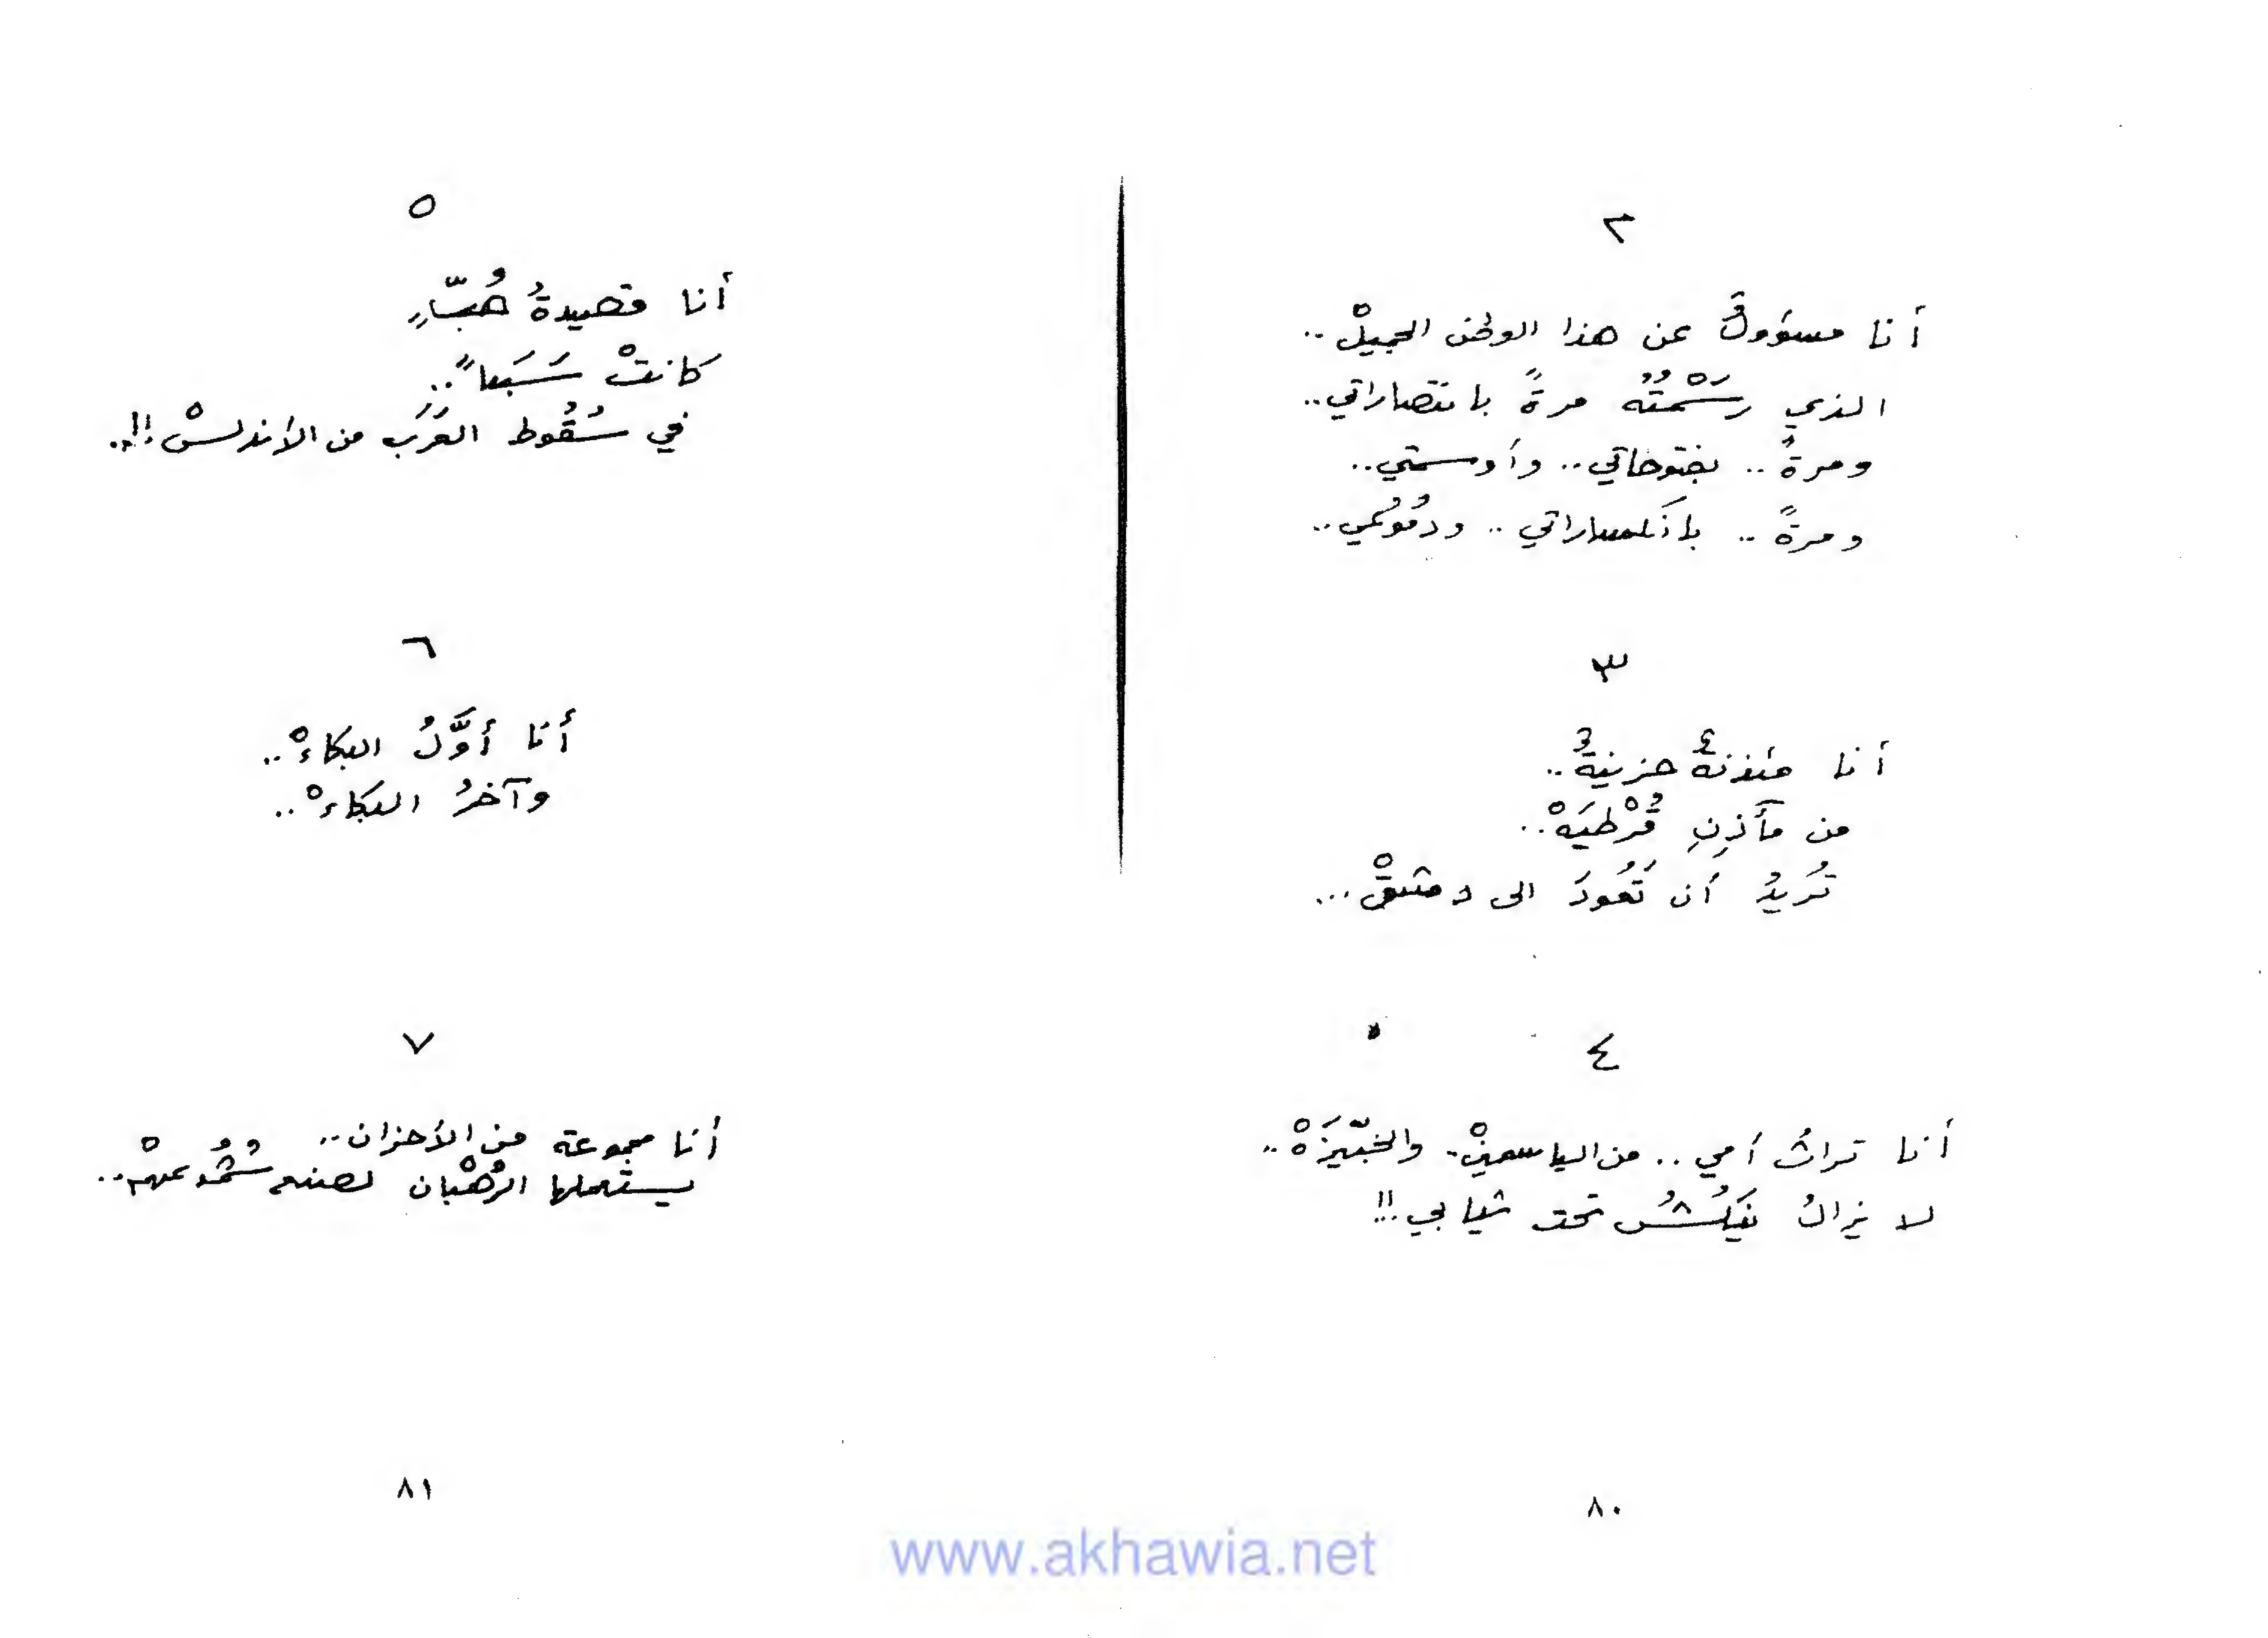 ٢
أنا مسؤولٌ عن هذا الوطن الجميلْ..
الذي رَسَمْتُهُ مرةً بانتصاراتي..
ومرةً.. بفتوحاتي.. وأوسمتي..
ومرةً.. بانكساراتي.. ودُمُوعي..
٣
أنا مئذنةٌ حزينةٌ..
من مآذِنِ قُرْطُبَهْ..
تُريدُ أن تَعُودَ الى دمشقْ...
٤
أنا تراثُ أمي.. من الياسمينْ.. والخبّيزَهْ..
لا يزالُ يَكْنُشُ تحت ثيابي..!!
٥
أنا قصيدةُ حُبٍّ
كانتْ سَبَباً..
في سُقُوط العَرَب من الأندلسْ..!!
٦
أنا أوَّلُ البكاءْ..
وآخرُ البكاءْ..
٧
أنا مجموعة من الأحزان..
يستعملها الرُهْبان لصنع شُمُوعهمْ..
٨٠
٨١
www.akhawia.net